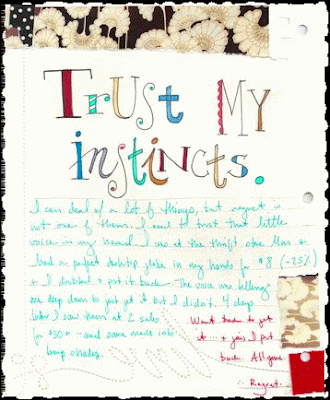 TRUST MY
instincts.
I can deal w/ a lot of things, but regret is
not one of them. I need to trust that little
voice in my head. I was at the thrift store Mon +
had a perfect desktop globe in my hands for $8 (-25%)
+ I doubted + put it back. The voice was telling
me deep down to just get it but I didn't. 4 days
later I saw them at 2 sales
for $30+ - and some made into
lamp shades.
Went back to get
it ... + yes I put
back. All gone.
... Regret.